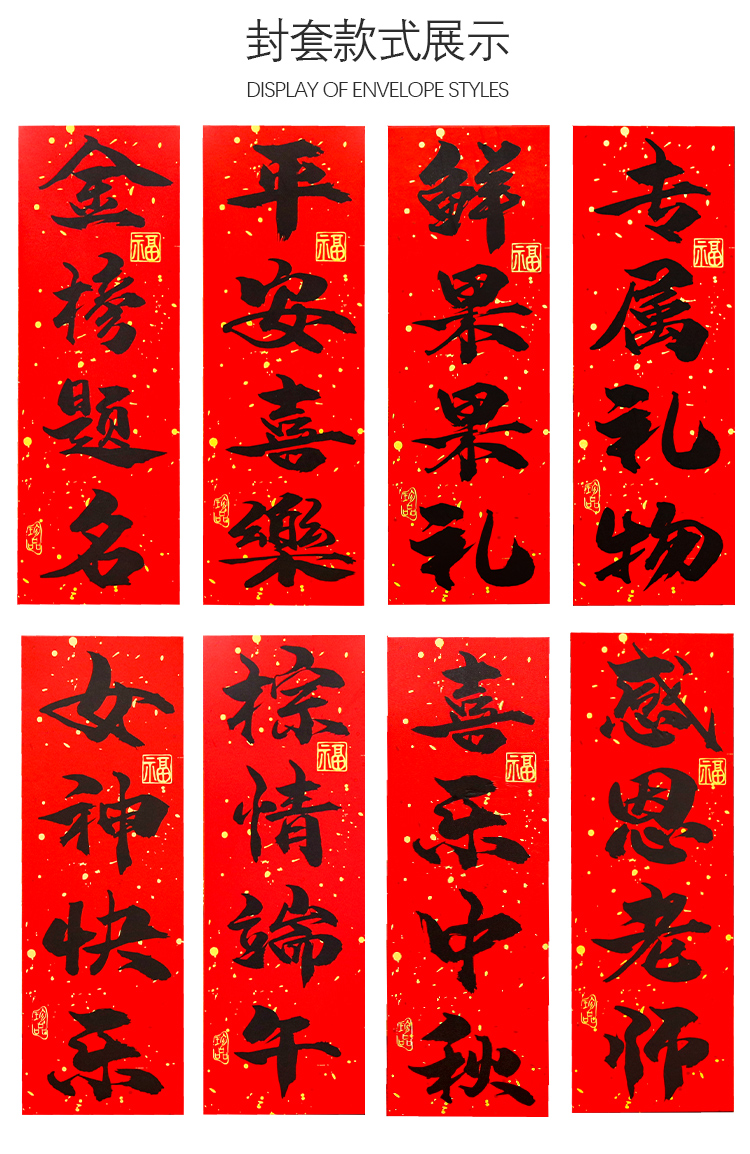 封套款式展示
DISPLAY OF ENVELOPE STYLES
金榜题名
福
珍品
平安喜樂
福
珍品
鲜果果礼
福
珍品
专属礼物
福
珍品
女神快乐
福
珍品
棕情端午
福
珍品
喜乐中秋
福
珍品
感恩老师
福
珍品